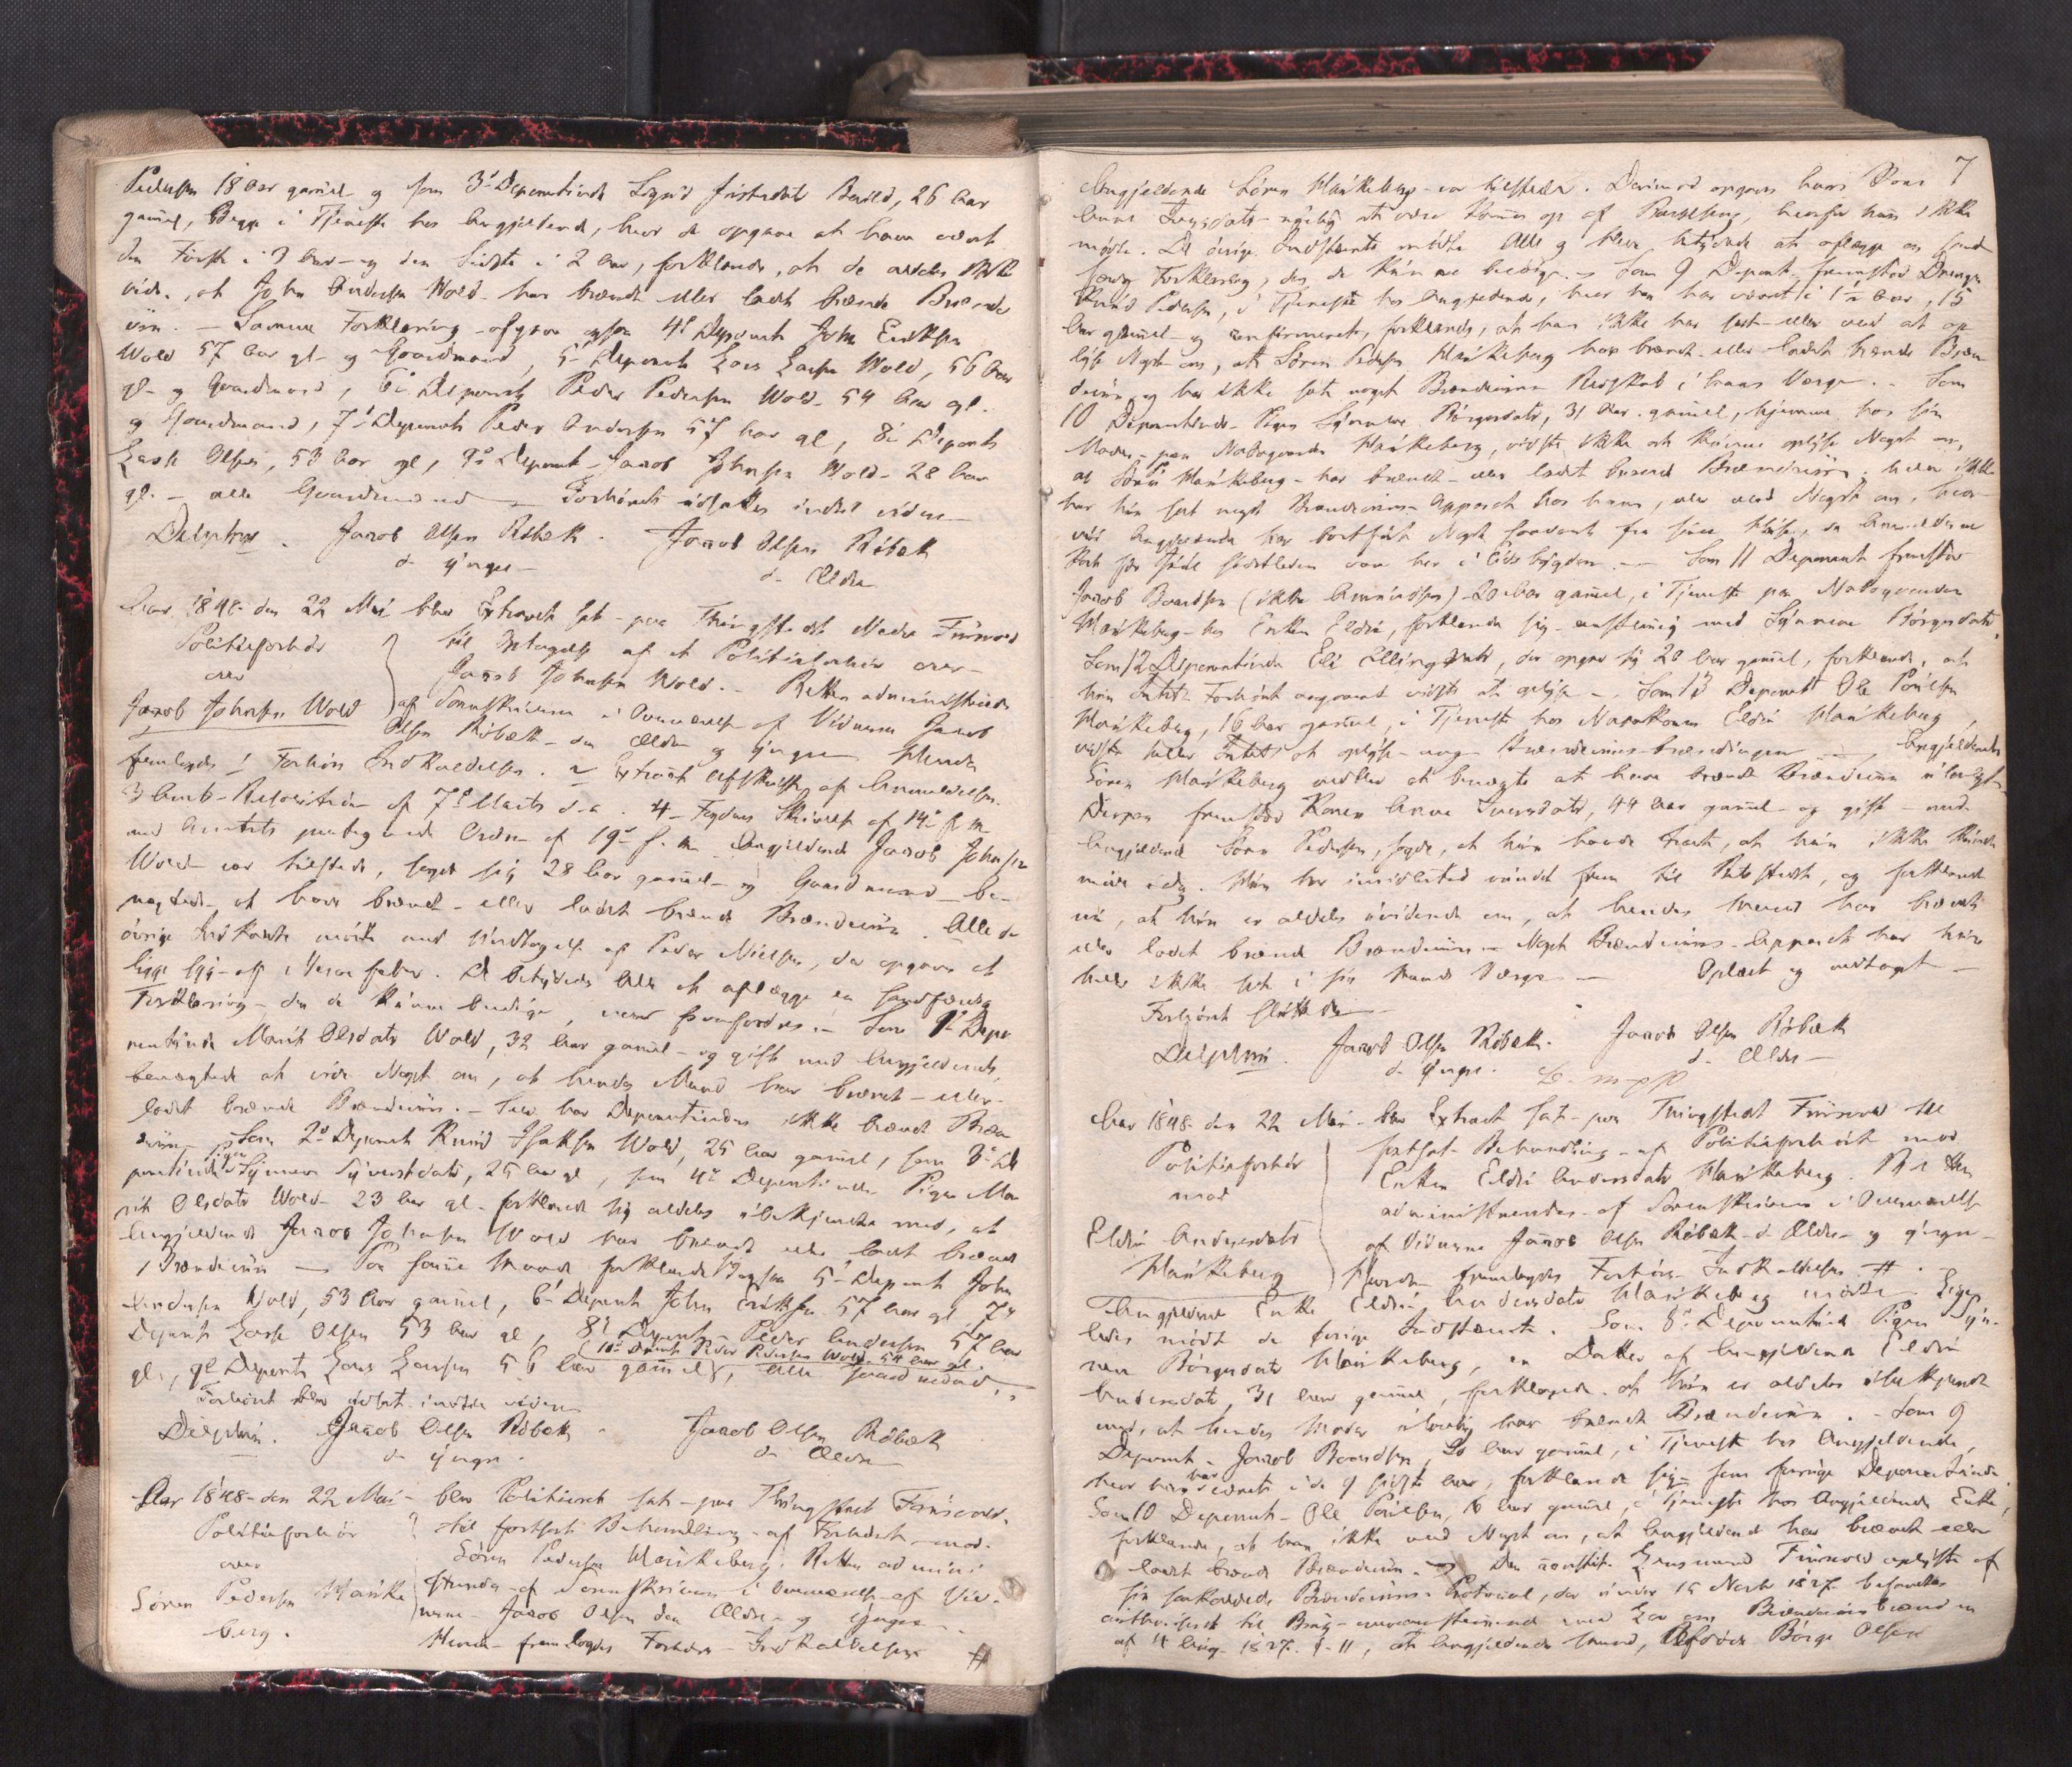 Pedersen 18 Aar gammel og som 3d Deponentinde Sigrid 26 Aar
gammel, Begge i Tjeneste hos Angjeldende, hvor de opgave at have været
den Første i 3 Aar og den Sidste i 2 Aar, forklarede, at de aldeles ikke
vide, at John Andersen Wold har brændt eller ladet brænde Brænde
viin. — Samme Forklaring afgave ogsaa 4d Deponent John Eriksen
Wold 57 Aar gl og Gaardmand, 5d Deponent Lars Larsen Wold, 56 Aar
gl og Gaardmand, 6d Deponent Peder Pedersen Wold 54 Aar gl.
og Gaardmand, 7d Deponent Peder Andersen 57 Aar gl, 8d Deponent
Lasse Olsen, 53 Aar gl, 9d Deponent Jacob Johnsen Wold 28 Aar
gl. — alle Gaardmænd — Forhøret udsattes indtil videre —
Delphin. Jacob Olsen Röbæk. Jacob Olsen Röbæk
d. yngre — d. Ældre
Aar 1848 den 22 Mai blev Extraret sat paa Thingstedet Nedre Fiinvold
Politieforhör til Optagelse af et Politieforhör over
over Jacob Johnsen Wold. — Retten administreredes
Jacob Johnsen Wold af Sorenskriveren i Overværelse af Vidnerne Jacob
Olsen Röbæk den Ældre og Yngre Herunder
fremlagdes 1 Forhörs Indkaldelsen. 2 Extract Afskrift af Anmeldelsen.
3 Amts Resolution af 7d Marts d.a. 4 Fogdens Skrivelse af 14d f. m
med Amtets paategnede Ordre af 19d f. m. Angjeldende Jacob Johnsen
Wold var tilstede, sagde sig 28 Aar gammel og Gaardmand be-
nægtede at have brændt eller ladet brænde Brændeviin. Alle de
övrige Indkaldte mödte med Undtagelse af Peder Nielsen, der opgaves at
ligge syg af Nervefeber. De betydedes Alle at aflægge en sandfærdig
Forklaring, den de kunne beedige, naar paafordres. — Som 1d Depo
nentinde Marit Olsdatr Wold, 32 Aar gammel og gift med Angjeldende,
benægtede at vide Noget om, at hendes Mand har brændt eller
ladet brænde Brændeviin. — Selv har Deponentinden ikke brændt Bræn
deviin. Som 2d Deponent Knud Isaksen Wold, 25 Aar gammel, som 3d De
ponentinde Pigen Synneva Syverstdatr, 25 Aar gl, som 4d Deponentinde Pigen Ma
rit Olsdatr Wold 23 Aar gl forklarede sig aldeles ubekjendte med, at
Angjeldende Jacob Johnsen Wold har brændt eller ladt brænde
Brændeviin — Paa samme Maade forklarede sig ogsaa 5d Deponent John
Andersen Wold, 53 Aar gammel, 6d Deponent John Eriksen 57 Aar gl, 7d
Deponent Lasse Olsen 53 Aar gl, 8d Deponent Peder Andersen 57 Aar
10d Deponent Peder Pedersen Wold 54 Aar gl.
gl., 9d Deponent Lars Larsen 56 Aar gammel, alle Gaardmænd,
Forhöret blev udsat indtil videre
Delphin. Jacob Olsen Röbæk Jacob Olsen Röbæk
d yngre. d. Ældre
Aar 1848 den 22 Mai blev Politieret sat paa Thingstedet Fiinvold
Politieforhör til fortsat Behandling af Forhöret mod
over Sören Pedersen Haukeberg. Retten admini
Sören Pedersen Hauke streredes af Sorenskriveren i Overværelse af Vid-
berg. nerne Jacob Olsen den Ældre og Yngre
Herunder fremlagdes Forhörs Indkaldelsen #
7
Angjeldende Sören Haukeberg var tilstede. Derimod opgaves hans Kone
Anne Iversdatr nylig at være kommen op af Barselseng, hvorfor hun ikke
mödte. De övrige Indstævnte mödte Alle og bleve betydede at aflægge en sand
færdig Forklaring, den de kunne beedige. — Som 9 Deponent fremstod Drengen
Knud Pedersen, i Tjeneste hos Angjeldende, hvor han har været i 1½ Aar, 15
Aar gammel og confirmeret, forklarede, at han ikke har seet eller veed at op
lyse Noget om, at Sören Pedersen Haukeberg har brændt eller ladet brænde Bræn
deviin og har ikke seet noget Brændeviins Redskab i hans Værge. — Som
10 Deponentinde Pigen Synneve Börgesdatr, 31 Aar gammel, hjemme hos sin
Moder paa Nabogaarden Haukeberg, vidste ikke at kunne oplyse Noget om,
at Sören Haukeberg har brændt eller ladet brænde Brændeviin, heller ikke
har hun seet noget Brændeviins Apparat hos ham, eller veed Noget om, hvor
vidt Angjeldende har bortfört Noget saadant fra sit Huus, da Anmelderen
kort för Juul sidstleden var her i Udbygden. — Som 11 Deponent fremstod
Jacob Baardsen (ikke Amundsen) 20 Aar gammel, i Tjeneste paa Nabogaarden
Haukeberg hos Enken Eldri, forklarede sig eenstemmig med Synneve Börgesdatr.
Som 12 Deponentinde Eli Ellingsdatr, der opgav sig 20 Aar gammel, forklarede, at
hun Intet Forhöret angaaende vidste at oplyse. Som 13 Deponent Ole Poulsen
Haukeberg, 16 Aar gammel, i Tjeneste hos Nabokonen Eldri Haukeberg,
vidste heller Intet at oplyse om Brændeviinsbrændingen — Angjeldende
Sören Haukeberg vedblev at benægte at have brændt Brændeviin ulovligt.
Derpaa fremstod Konen Anne Iversdatr, 44 Aar gammel og gift med
Angjeldende Sören Pedersen, sagde, at hun havde troet, at hun ikke kunde
möde idag. Hun har imidlertid vundet frem til Retsstedet, og forklarede
nu, at hun er aldeles uvidende om, at hendes Mand har brændt
eller ladet brænde Brændeviin — Noget Brændeviins Apparat har hun
heller ikke seet i sin Mands Værge — Oplæst og vedtaget —
Forhöret sluttedes
Delphin. Jacob Olsen Röbæk. Jacob Olsen Röbæk
d. yngre. d. Ældre —
Aar 1848 den 22 Mai blev Extraret sat paa Thingstedet Fiinvold til
Politieforhör fortsat Behandling af Politieforhöret mod
mod Enken Eldri Andersdatr Haukeberg. Retten
administreredes af Sorenskriveren i Overværelse
Eldri Andersdatr af Vidnerne Jacob Olsen Röbæk d Ældre og yngre
Haukeberg Herunder fremlagdes Forhörs Indkaldelsen #.
Angjeldende Enke Eldri Andersdatr Haukeberg mödte. Lige
ledes mödte de övrige Indstævnte. Som 8d Deponentinde Pigen Syn-
neve Börgesdatr Haukeberg, en Datter af Angjeldende Eldri
Andersdatr, 31 Aar gammel, forklarede at hun er aldeles ubekjendt
med, at hendes Moder ulovlig har brændt Brændeviin. — Som 9
Deponent Jacob Baardsen, 20 Aar gammel, i Tjeneste hos Angjeldende,
hvor han har været i de 9 sidste Aar, forklarede sig som forrige Deponentinde
Som 10 Deponent Ole Poulsen, 16 Aar gammel, i Tjeneste hos Angjeldende Enke,
forklarede, at han ikke veed Noget om, at Angjeldende har brændt eller
ladet brænde Brændeviin. — Den constit. Lensmand Fiinvold oplyste af
sin saakaldede Brændeviins Protocol, der under 15 Novbr 1827 befandtes
authoriseret til Brug overeensstemmende med Lov om Brændeviinsbrænden
af 11 Aug 1827 § 11, at Angjeldendes Mand, Afdöde Börge Olsen